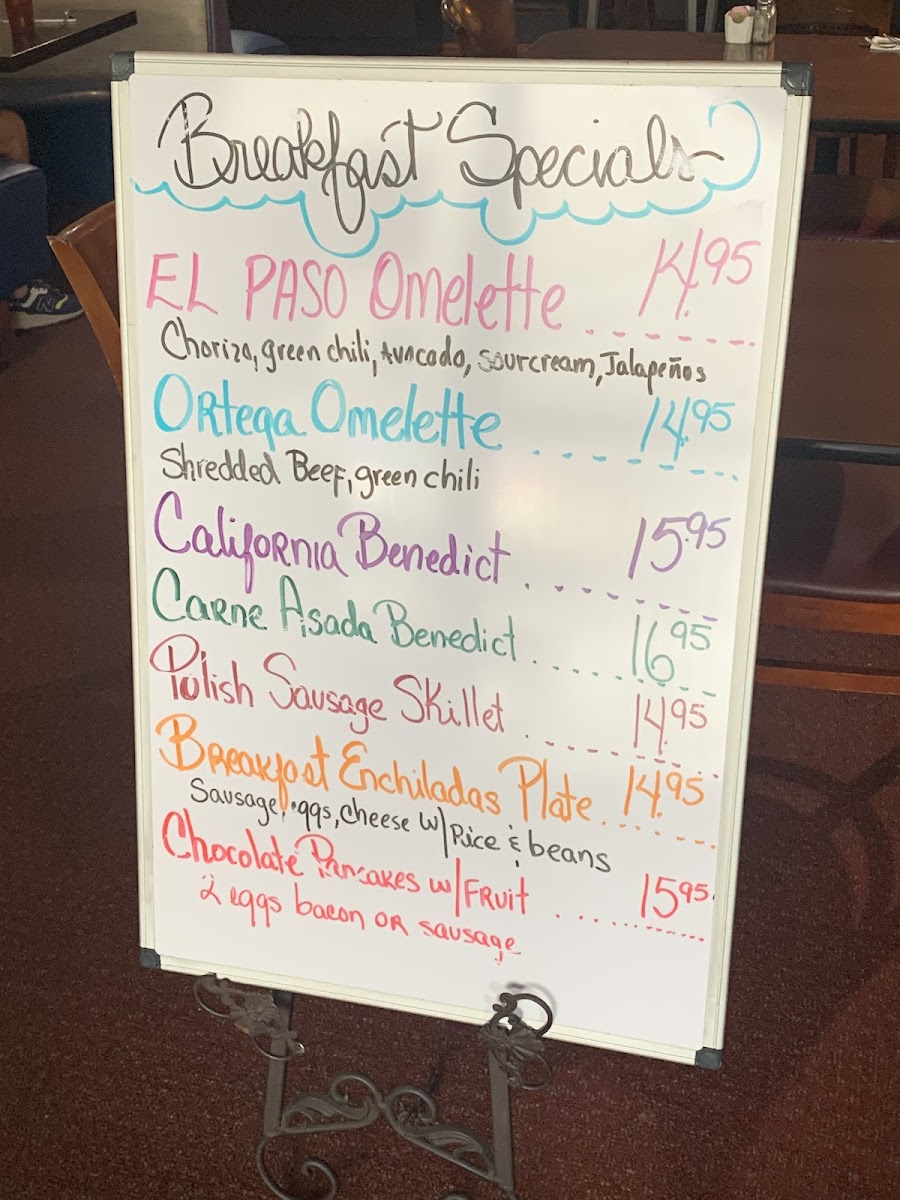 Breakfast Specials
EL PASO Omelette 14.95
Chorizo, green chili, Avacado, sourcream, Jalapeños
Ortega Omelette 14.95
Shredded Beef, green chili
California Benedict 15.95
Carne Asada Benedict 16.95
Polish Sausage Skillet 14.95
Breakfast Enchiladas Plate 14.95
Sausage, eggs, cheese w/ Rice & beans
Chocolate Pancakes w/ Fruit 15.95
2 eggs bacon or sausage